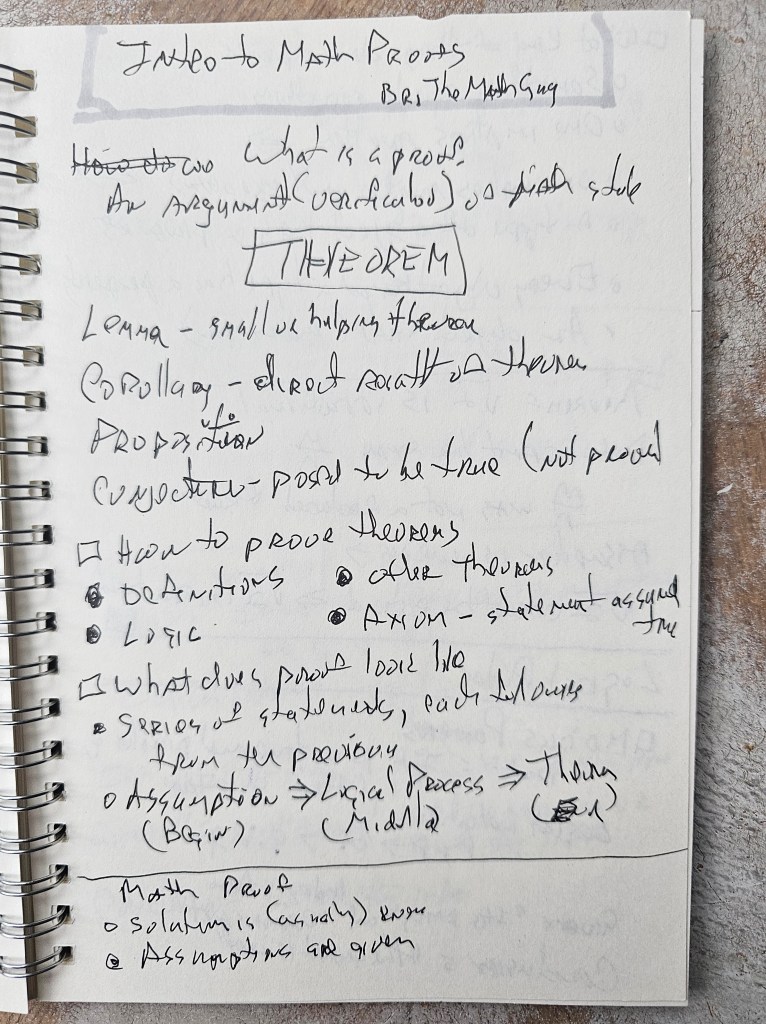 Intro to Math Proofs
Bri The Math Guy
How do What is a proof?
An Argument (verification) of math state
THEOREM
Lemma - small or helping theorem
Corollary - direct result of a theorem
Proposition
Conjecture - posed to be true (not proven)
How to prove theorems
• Definitions • other theorems
• Logic • Axiom - statement assumed
true
What does proof look like
• Series of statements, each follows
from the previous
o Assumption ⇒ Logical Process ⇒ Theorem
(Begin) (Middle) (End)
Math Proof
o Solution is (usually) known
o Assumptions are given